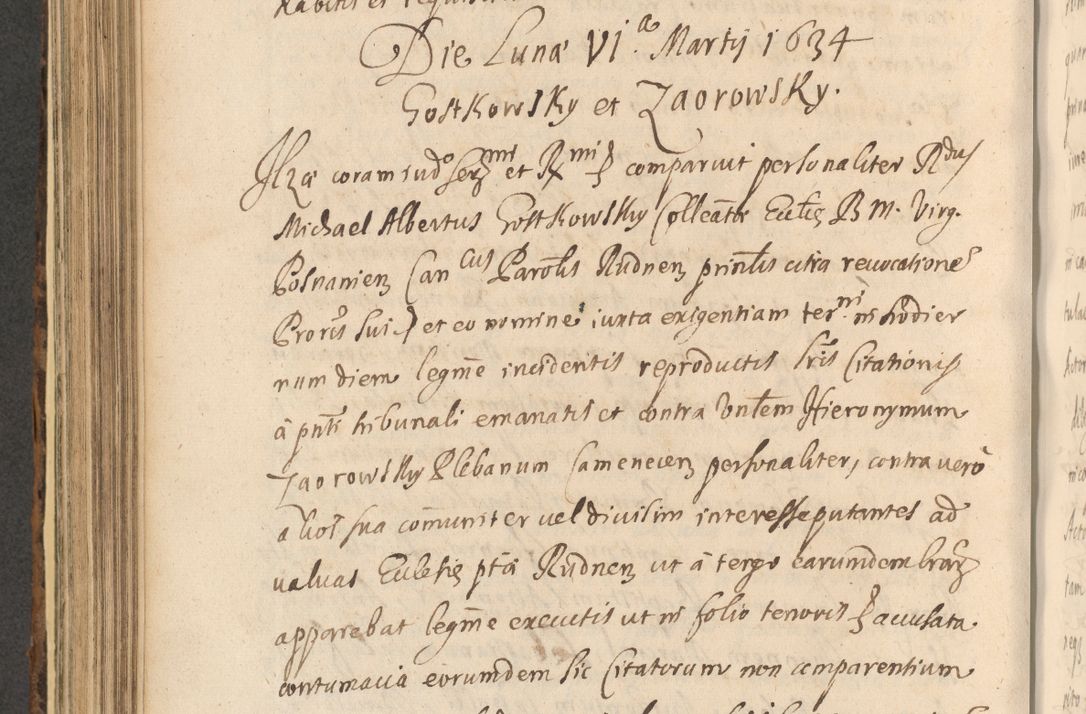 Die Lunæ VI.a Martij 1634
Gostkowsky et Zaorowsky.
Ilzæ coram Iudo Sermi et Rmi comparuit personaliter Rdus
Michael Albertus Gostkowsky Colleatæ Eccliæ B M. Virg.
Posnanien Can cus Parolis Rudnen prinlis citra reuocatione
Proris sui et eo nomine iuxta exigentiam ter.ni in hodier
num diem legme incidentis reproductis lris Citationis
à pnti tribunali emanatis et contra Vnlem Hieronymum
Zaorowsky Plebanum Camenecen personaliter, contra verò
alios sua comuniter uel diuisim interesse putantes ad
ualuas Eccletiæ ptæ Rudnen ut à tergo earumdem lrarum
apparebat legme executis ut in folio tenoris accusata
contumacia eorumdem sic Citatorum non comparentium